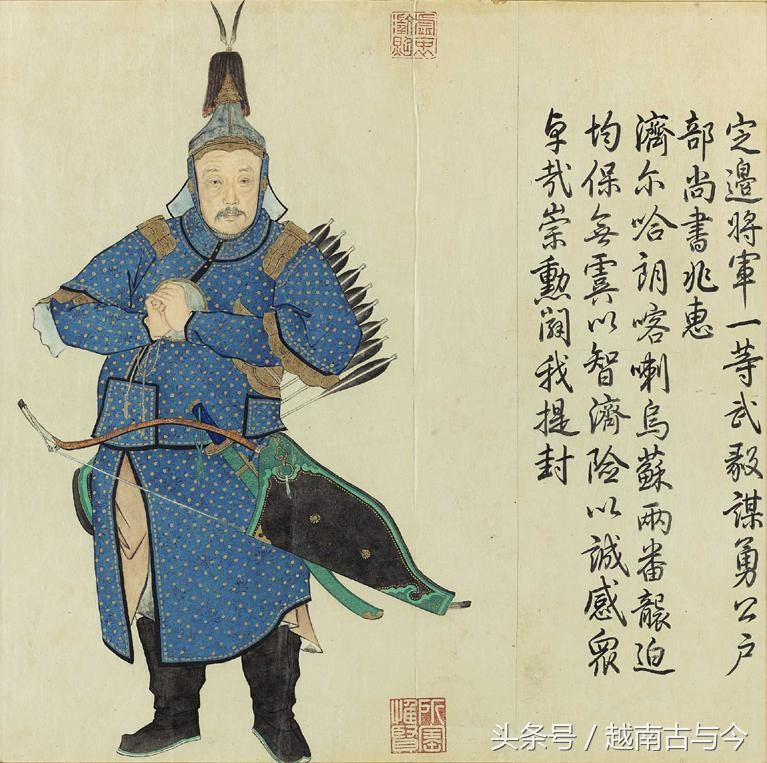 定邊將軍一等武毅謀勇公户
部尚書兆惠
濟尔哈朗喀喇烏蘇兩番襲迫
均保無虞以智濟險以誠感衆
卓哉崇勳闢我提封
所寶惟賢
头条号 / 越南古与今